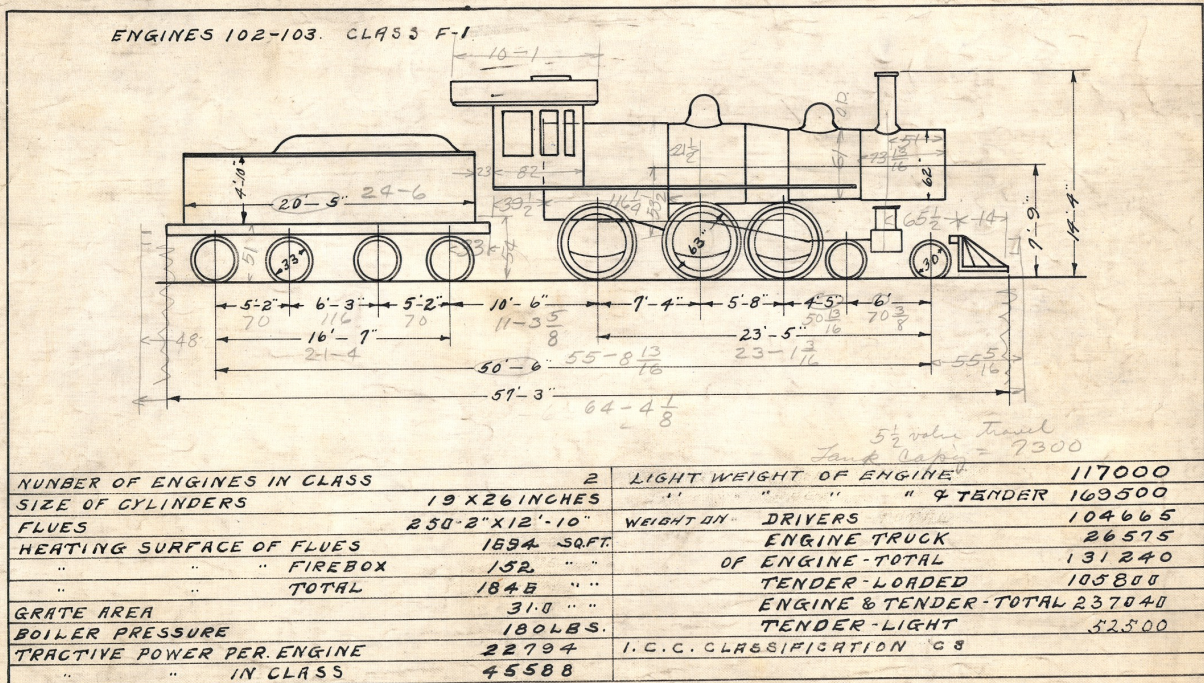 ENGINES 102-103. CLASS F-1
10-1
4'-10"
20'-5" 24-6
23 82
39 1/2
116 1/4
59 1/2
21 1/2
61 O.D.
73 13/16
51
62"
65 1/2 14
7'-9"
14'-4"
51 33" 33 54 63" 30"
5'-2" 6'-3" 5'-2" 10'-6" 7'-4" 5'-8" 4'-5" 6'
70 116 70 11-3 5/8 50 13/16 70 3/8
48 16'-7" 23'-5"
21-4 23-1 3/16
50'-6" 55-8 13/16 55 5/16
57'-3"
64-4 1/8
5 1/2 valve travel
Tank Cap'y = 7300
NUNBER OF ENGINES IN CLASS 2
SIZE OF CYLINDERS 19 X 26 INCHES
FLUES 250-2" X 12'-10"
HEATING SURFACE OF FLUES 1694 SQ.FT.
" " " FIREBOX 152 " "
" " TOTAL 1846 " "
GRATE AREA 31.0 " "
BOILER PRESSURE 180 LBS.
TRACTIVE POWER PER. ENGINE 22794
" " IN CLASS 45588
LIGHT WEIGHT OF ENGINE 117000
" " " " & TENDER 169500
WEIGHT ON DRIVERS 104665
ENGINE TRUCK 26575
OF ENGINE-TOTAL 131240
TENDER-LOADED 105800
ENGINE & TENDER-TOTAL 237040
TENDER-LIGHT 52500
I.C.C. CLASSIFICATION C8